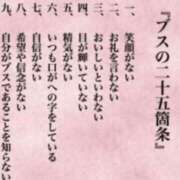 『ブスの二十五箇条』
一、笑顔がない
二、お礼を言わない
三、おいしいといわない
四、目が輝いていない
五、精気がない
六、いつも口がへの字をしている
七、自信がない
八、希望や信念がない
九、自分がブスであることを知らない